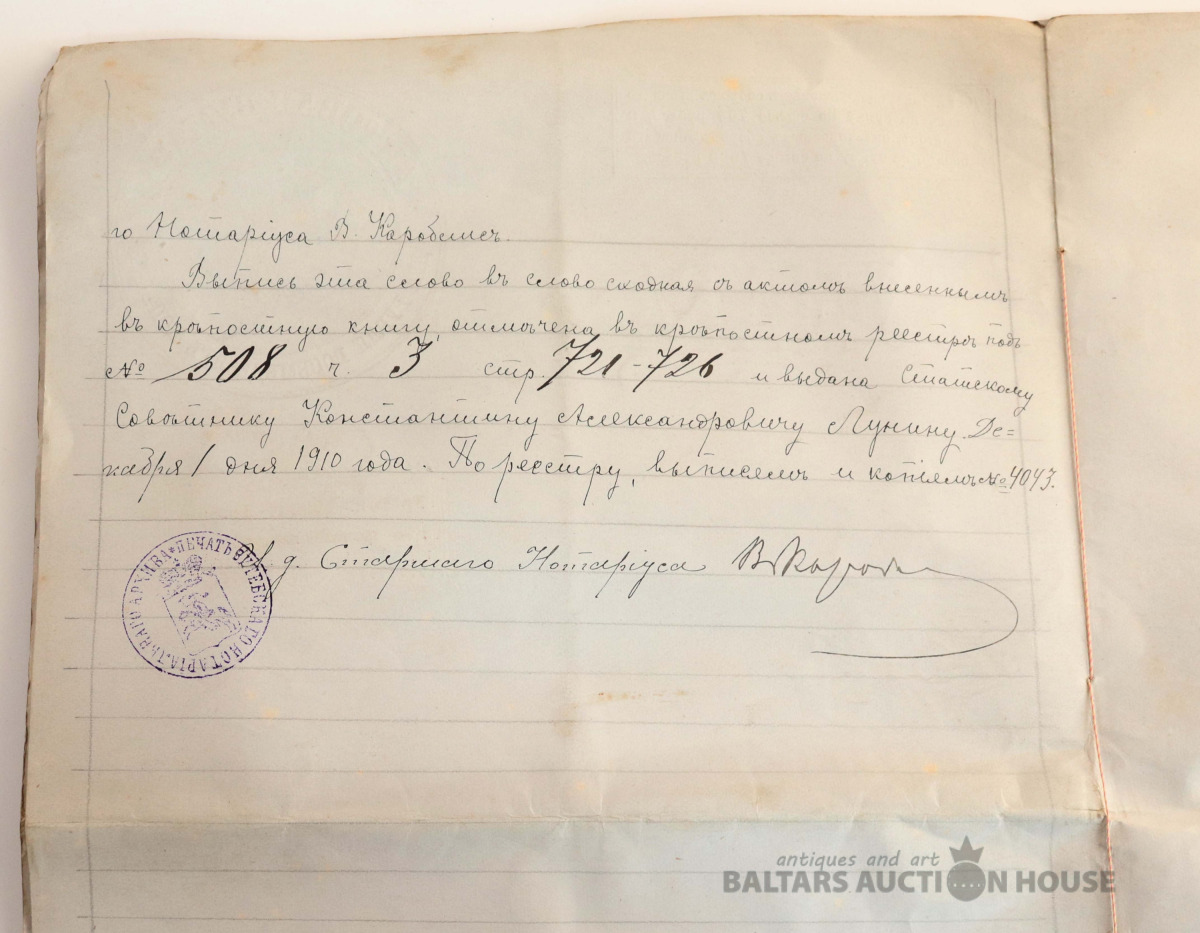 го Нотаріуса В. Каробелис.
Выпись эта слово въ слово сходная съ актомъ внесеннымъ
въ крѣпостную книгу, отмѣчена въ крѣпостномъ реестрѣ подъ
№ 508 ч. 3 стр. 721-726 и выдана Статскому
Совѣтнику Константину Александровичу Лунину. Де=
кабря 1 дня 1910 года. По реестру, выписемъ и копіямъ № 4043.
И. д. Старшаго Нотаріуса
ПЕЧАТЬ ВИТЕБСКАГО НОТАРІАЛЬНАГО АРХИВА
antiques and art
BALTARS AUCTION HOUSE